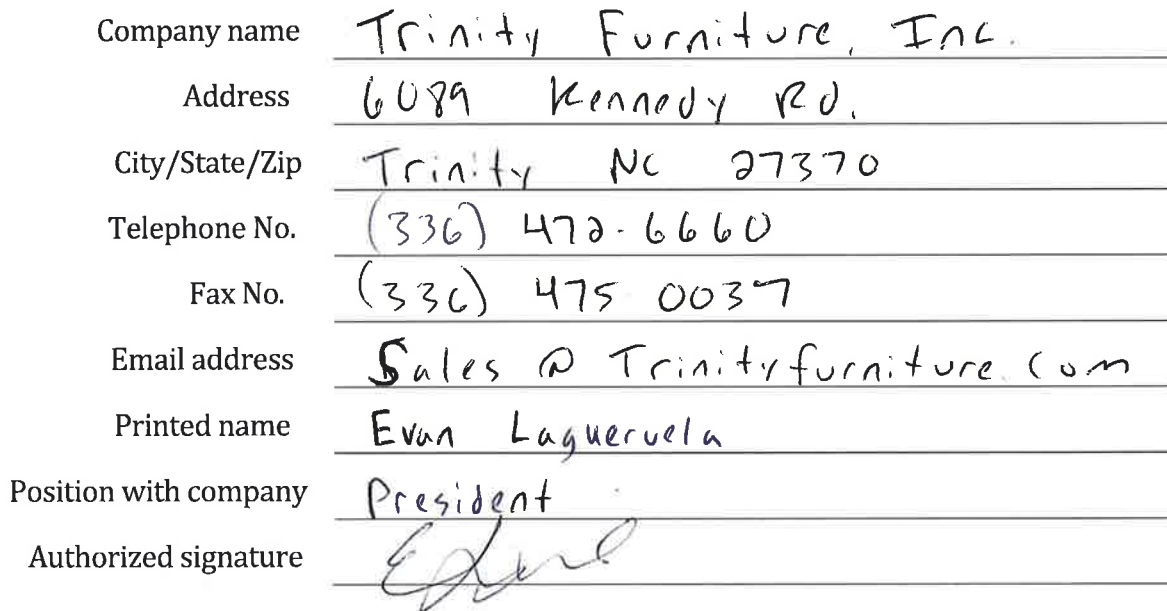 Company name Trinity Furniture, Inc.
Address 6089 Kennedy Rd.
City/State/Zip Trinity NC 27370
Telephone No. (336) 472-6660
Fax No. (336) 475 0037
Email address Sales @ Trinityfurniture.com
Printed name Evan Lagueruela
Position with company President
Authorized signature